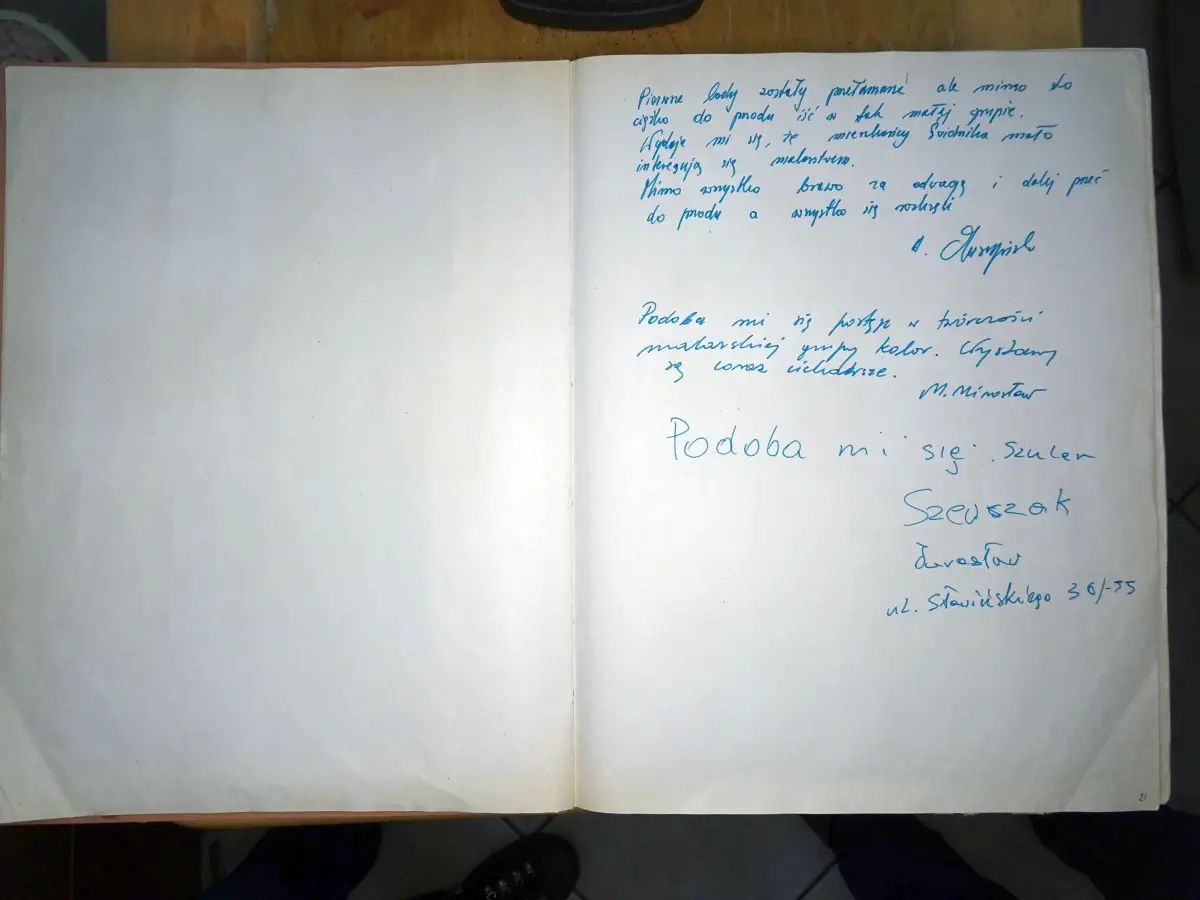 Pierwsze lody zostały przełamane ale mimo to
ciężko do przodu iść w tak małej grupie.
Wydaje mi się, że mieszkańcy Świdnika mało
interesują się malarstwem.
Mimo wszystko brawo za odwagę i dalej przeć
do przodu a wszystko się rozkręci
A.
Podoba mi się postęp w twórczości
malarskiej grupy kolor. Wystawy
są coraz ciekawsze.
M. Mirosław
Podoba mi się
Szewszak
Jarosław
ul. Sławińskiego 36/-55
21